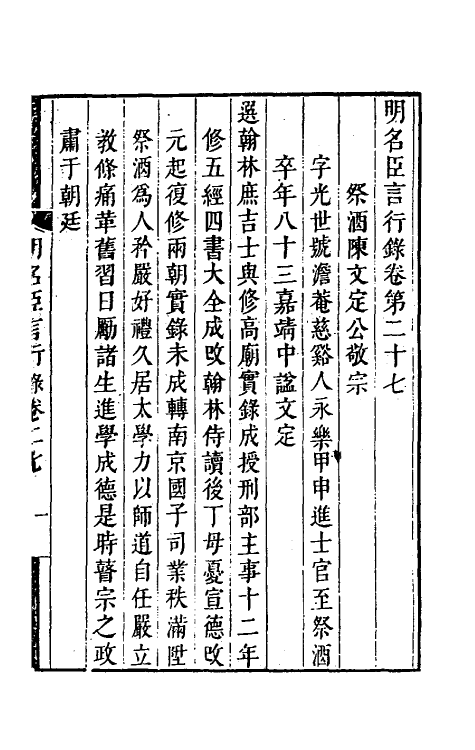 明名臣言行錄卷第二十七
祭酒陳文定公敬宗
字光世號澹菴慈谿人永樂甲申進士官至祭酒
卒年八十三嘉靖中諡文定
選翰林庶吉士與修高廟實錄成授刑部主事十二年
修五經四書大全成攺翰林侍讀後丁母憂宣德攺
元起復修兩朝實錄未成轉南京國子司業秩滿陞
祭酒爲人矜嚴好禮久居太學力以師道自任嚴立
教條痛革舊習日勵諸生進學成德是時瞽宗之政
肅于朝廷
明名臣言行錄卷二七
一